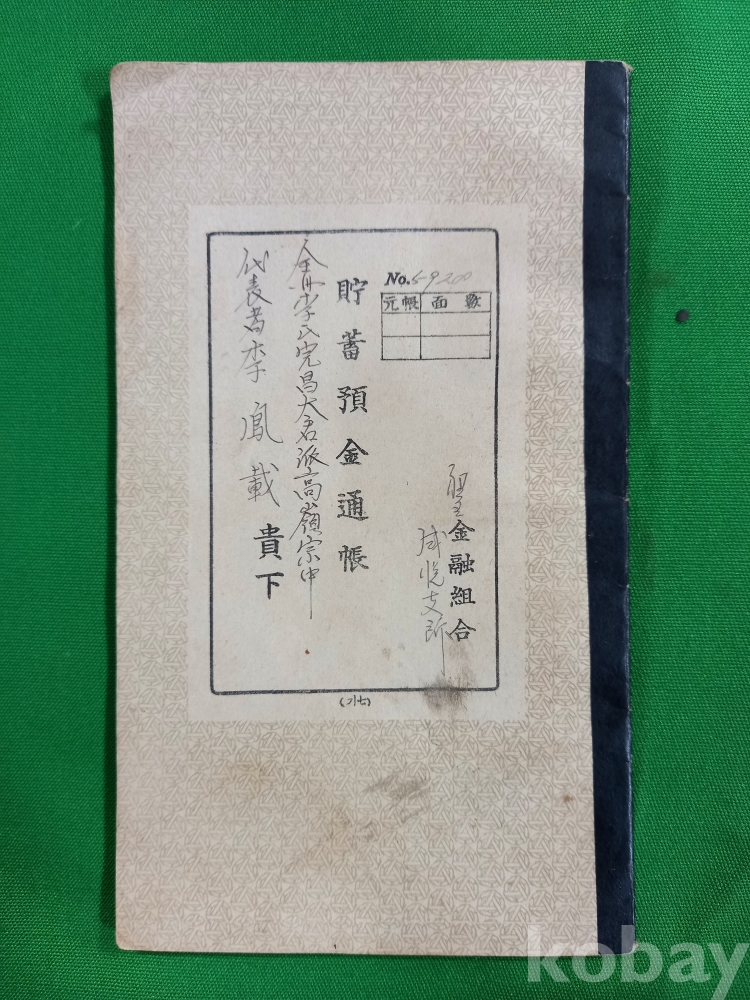 No. 5920
元帳 面數
聖金融組合
咸悅支所
貯蓄預金通帳
全州李氏完昌大君派高嶺宗中
代表者李鳳載貴下
kobay